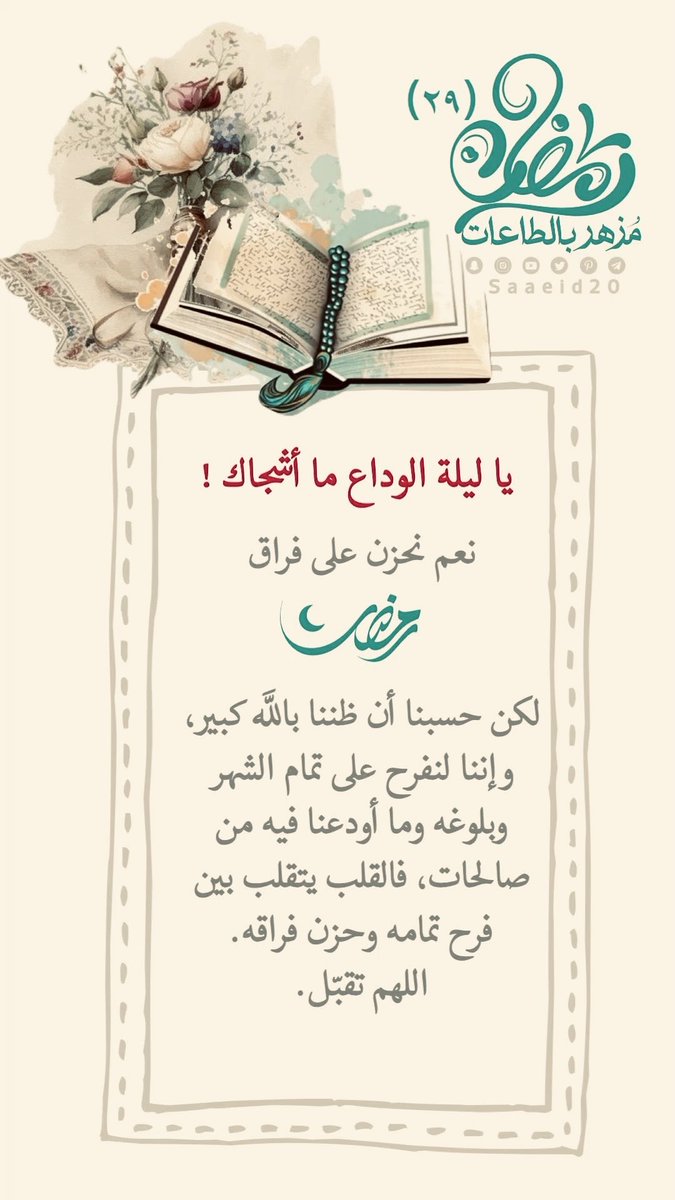 رمضان (٢٩)
مُزهر بالطاعات
Saaeid20
يا ليلة الوداع ما أشجاك !
نعم نحزن على فراق
رمضان
لكن حسبنا أن ظننا باللَّه كبير،
وإننا لنفرح على تمام الشهر
وبلوغه وما أودعنا فيه من
صالحات، فالقلب يتقلب بين
فرح تمامه وحزن فراقه.
اللهم تقبّل.